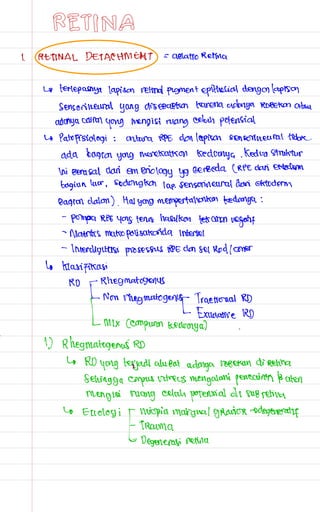 RETINA
1. RETINAL DETACHMENT = ablatio Retina
↳ terlepasnya lapisan retinal pigment epithelial dengan lapisan
Sensorineural yang disebabkan karena adanya robekan atau
adanya cairan yang mengisi ruang celah potensial
↳ Patofisiologi : antara RPE dan lapisan sensorineural tidak
ada bagian yang merekatkan keduanya, kedua struktur
ini berasal dari embriology yg berbeda (RPE dari ektoderm
bagian luar, sedangkan lap sensorineural dari ektoderm
bagian dalam). Hal yang mempertahankan keduanya :
- pompa RPE yang terus hasilkan tekanan negatif
- Matriks mukopolisakarida intersel
- Interdigitasi prosessus RPE dan sel Rod/cone
↳ klasifikasi
RD - Rhegmatogenus
- Non rhegmatogenus - Tractional RD
- Exudative RD
- Mix (campuran keduanya)
1) Rhegmatogenus RD
↳ RD yang terjadi akibat adanya robekan di Retina
sehingga corpus vitreus mengalami pencairan & akan
mengisi ruang celah potensial di subretina
↳ Etiologi - miopia maligna/
- Trauma
- Degenerasi retina